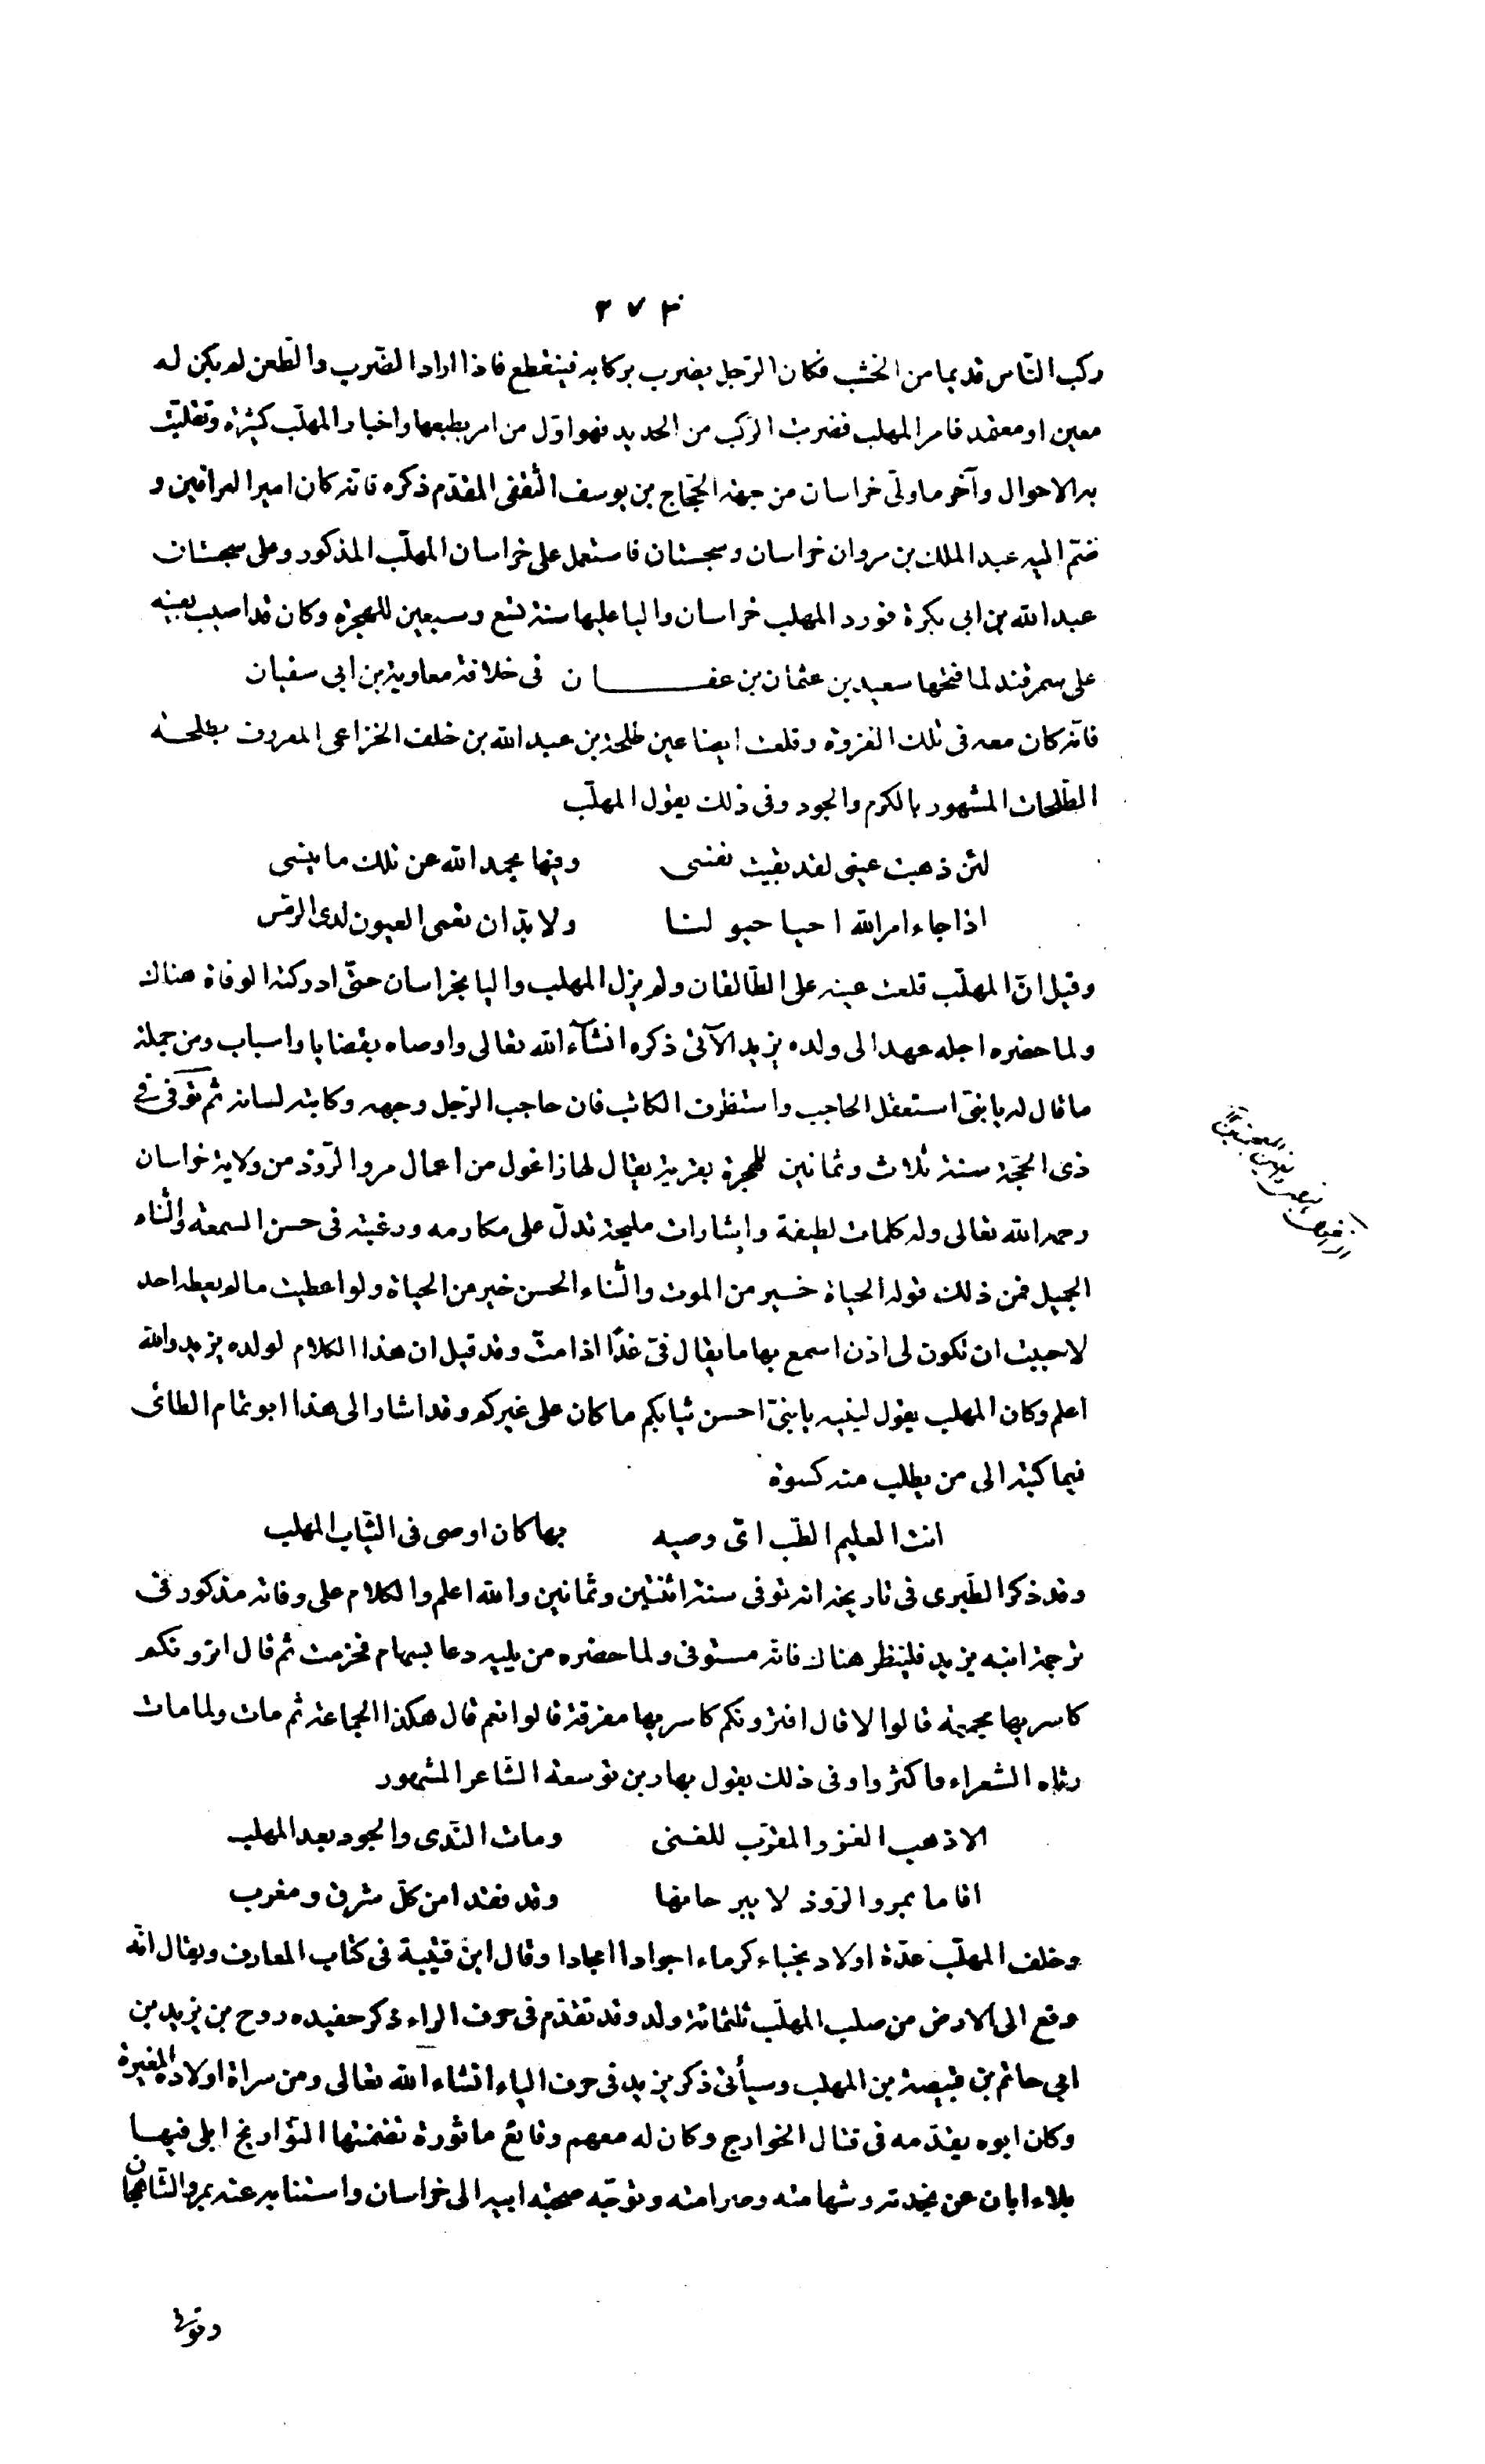 ٢٧٣
ركب الناس قديما من الخشب فكان الرّجل يضرب بركابه فينقطع فاذا اراد الضّرب والطّعن لم يكن له
معين او معتمد فامر المهلب فضربت الرّكب من الحديد فهو اوّل من امر بطبعها واخبار المهلّب كثيرة وتقلّبت
به الاحوال وآخر ما ولّى خراسان من جهة الحجّاج بن يوسف الثّقفى المقدّم ذكره فانّه كان امير العراقين و
ضمّ اليه عبد الملك بن مروان خراسان وسجستان فاستعمل على خراسان المهلّب المذكور وعلى سجستان
عبد الله بن ابى بكرة فورد المهلب خراسان واليا عليها سنة تسع وسبعين للهجرة وكان قد اصيب بعينه
على سمرقند لما فتحها سعيد بن عثمان بن عفــــان فى خلافة معاوية بن ابى سفيان
فانّه كان معه فى تلك الغزوة وقلعت ايضا عين طلحة بن عبد الله بن خلف الخزاعى المعروف بطلحــة
الطّلحات المشهور بالكرم والجود وفى ذلك يقول المهلّب
لئن ذهبت عينى لقد بقيت نفسى وفيها بحمد الله عن تلك ما ينسى
اذا جاء امر الله احيا حيو لنــا ولا بدّ ان تعمى العيون لدى الرّمس
وقيل انّ المهلّب قلعت عينه على الطّالقان ولم يزل المهلب واليا بخراسان حتّى ادركته الوفاة هناك
ولما حضره اجله عهد الى ولده يزيد الآتى ذكره انشآء الله تعالى واوصاه بقضايا واسباب ومن جملة
ما قال له يا بنىّ استعقل الحاجب واستظرف الكاتب فان حاجب الرّجل وجهه وكاتبه لسانه ثم توفّى فى
ذى الحجّة سنة ثلاث وثمانين للهجرة بقرية يقال لها زاغول من اعمال مرو الرّوذ من ولاية خراسان
رحمه الله تعالى وله كلمات لطيفة واشارات مليحة تدلّ على مكارمه ورغبته فى حسن السمعة والثّناء
الجميل فمن ذلك قوله الحياة خــير من الموت والثّناء الحسن خير من الحياة ولو اعطيت ما لم يعطه احد
لاحببت ان تكون لى اذن اسمع بها ما يقال فىّ غدًا اذا متّ وقد قيل ان هذا الكلام لولده يزيد والله
اعلم وكان المهلب يقول لبنيه يا بنىّ احسن ثيابكم ما كان على غيركم وقد اشار الى هذا ابو تمام الطائى
فيما كتبه الى من يطلب منه كسوة
انت العليم الطّب اىّ وصيه بها كان اوصى فى الثّياب المهلب
وقد ذكر الطّبرى فى تاريخه انه توفى سنة اثنتين وثمانين والله اعلم والكلام على وفاته مذكور فى
ترجمة ابنه يزيد فلينظر هناك فانّه مستوفى ولما حضره من يليه دعا بسهام فحزمت ثم قال اترونكم
كاسريها مجموعة قالوا لا قال افترونكم كاسريها مفرقة قالوا نعم قال هكذا الجماعة ثم مات ولما مات
رثاه الشعراء فاكثروا وفى ذلك يقول نهار بن توسعة الشّاعر المشهور
الا ذهب الغزو المقرّب للغــنى ومات النّدى والجود بعد المهلب
اقاما بمرو الرّوذ لا يبرحانها وقد فقدا من كلّ مشرق ومغرب
وخلف المهلّب عدّة اولاد نجباء كرماء اجوادا امجادا وقال ابن قتيبة فى كتاب المعارف ويقال انّه
وقع الى الارض من صلب المهلّب ثلثمائة ولد وقد تقدّم فى حرف الراء ذكر حفيده روح بن يزيد بن
ابى حاتم بن قبيصة بن المهلب وسيأتى ذكر يزيد فى حرف الياء انشاء الله تعالى ومن سراة اولاده المغيرة
وكان ابوه يقدّمه فى قتال الخوارج وكان له معهم وقائع ماثورة تضمنتها التّواريخ ابلى فيهــا
بلاء ابان عن نجدته وشهامته وصرامته وتوجّه صحبة ابيه الى خراسان واستنابه عنه بمرو الشّاهجان
وتوفى